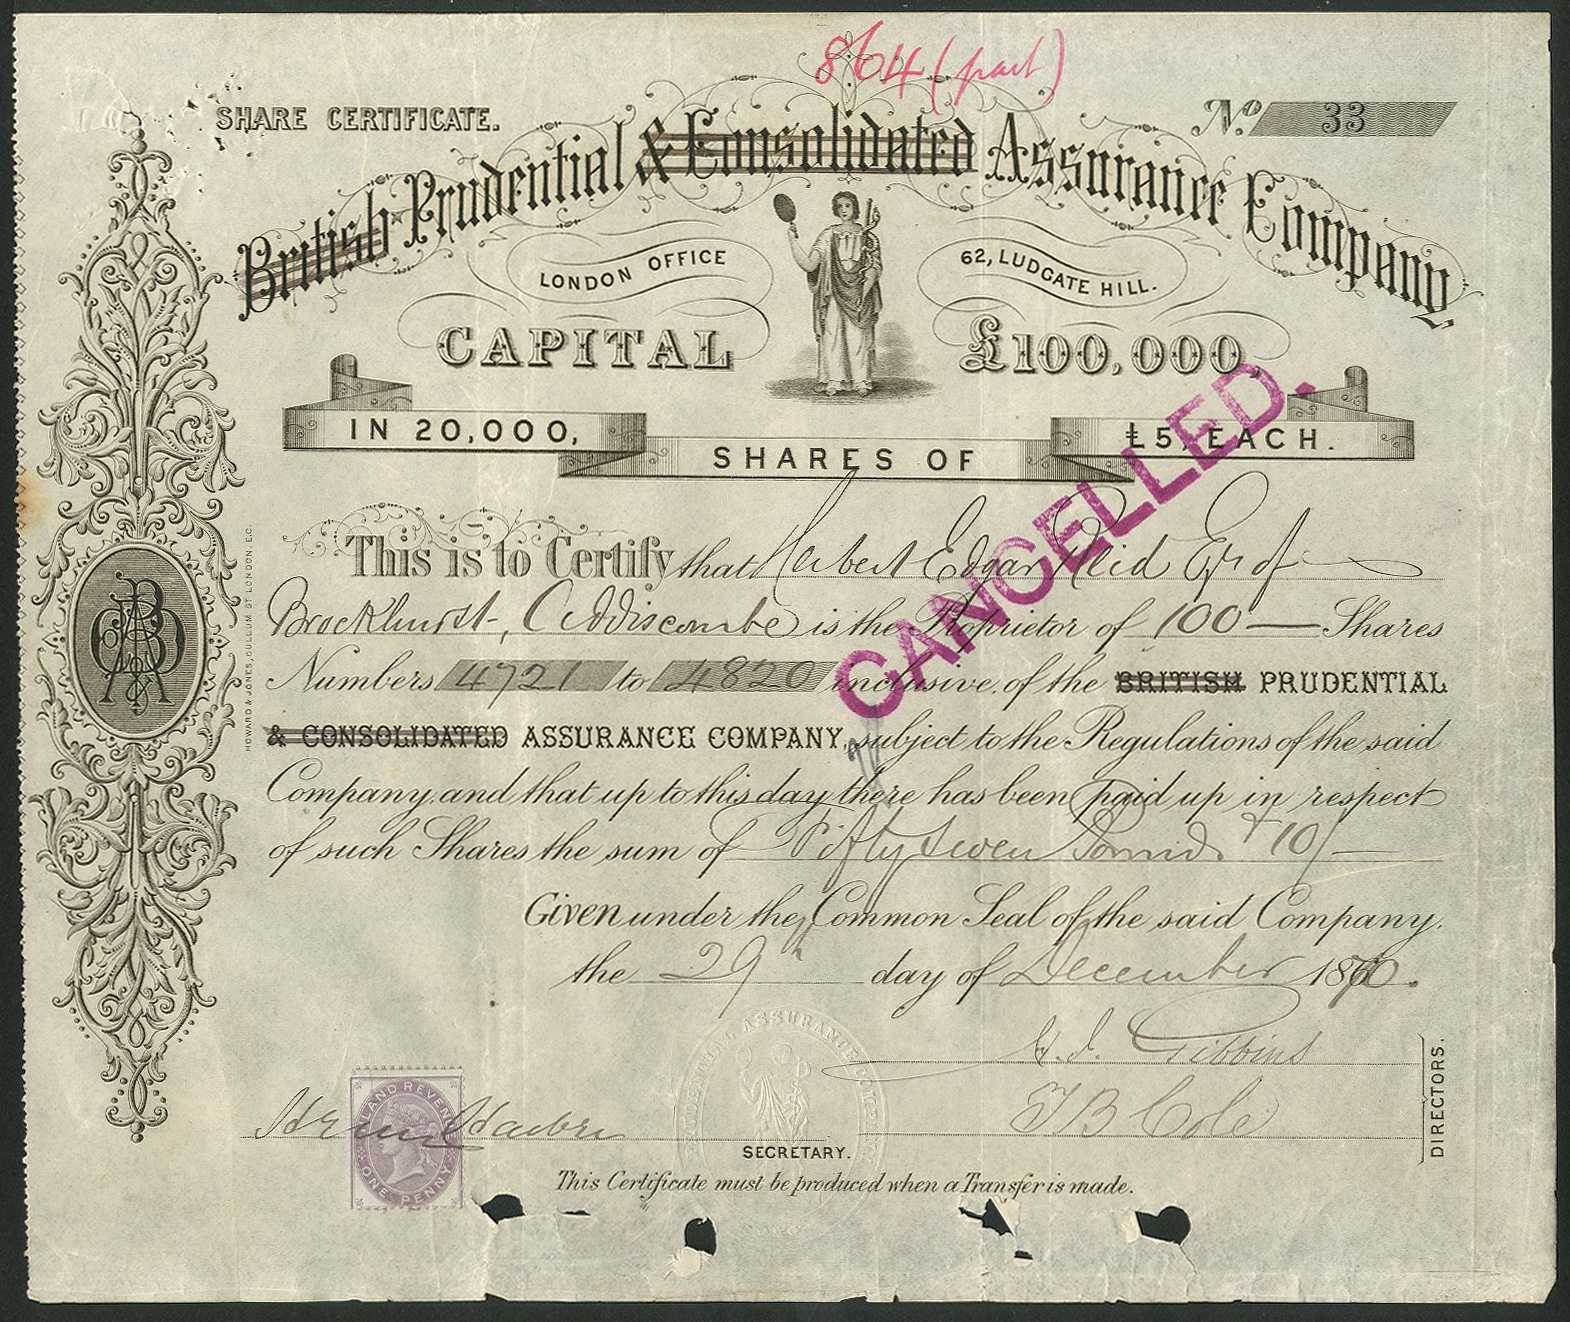 864 (part)
SHARE CERTIFICATE.
No. 33
British Prudential & Consolidated Assurance Company,
LONDON OFFICE
62, LUDGATE HILL.
CAPITAL £100,000,
IN 20,000, SHARES OF £5, EACH.
CANCELLED.
This is to Certify that Herbert Edgar Reid Esq of
Brockhurst, Addiscombe is the Proprietor of 100 Shares
Numbers 4721 to 4820 inclusive, of the BRITISH PRUDENTIAL
& CONSOLIDATED ASSURANCE COMPANY, subject to the Regulations of the said
Company, and that up to this day there has been paid up in respect
of such Shares the sum of Fifty seven Pounds & 10/-
Given under the Common Seal of the said Company.
the 29th day of December 1870.
H. J. Gibbins
T B Cole
DIRECTORS.
Henry Harben
SECRETARY.
INLAND REVENUE
ONE PENNY
PRUDENTIAL ASSURANCE COMPANY
This Certificate must be produced when a Transfer is made.
HOWARD & JONES, CULLUM ST LONDON. E.C.